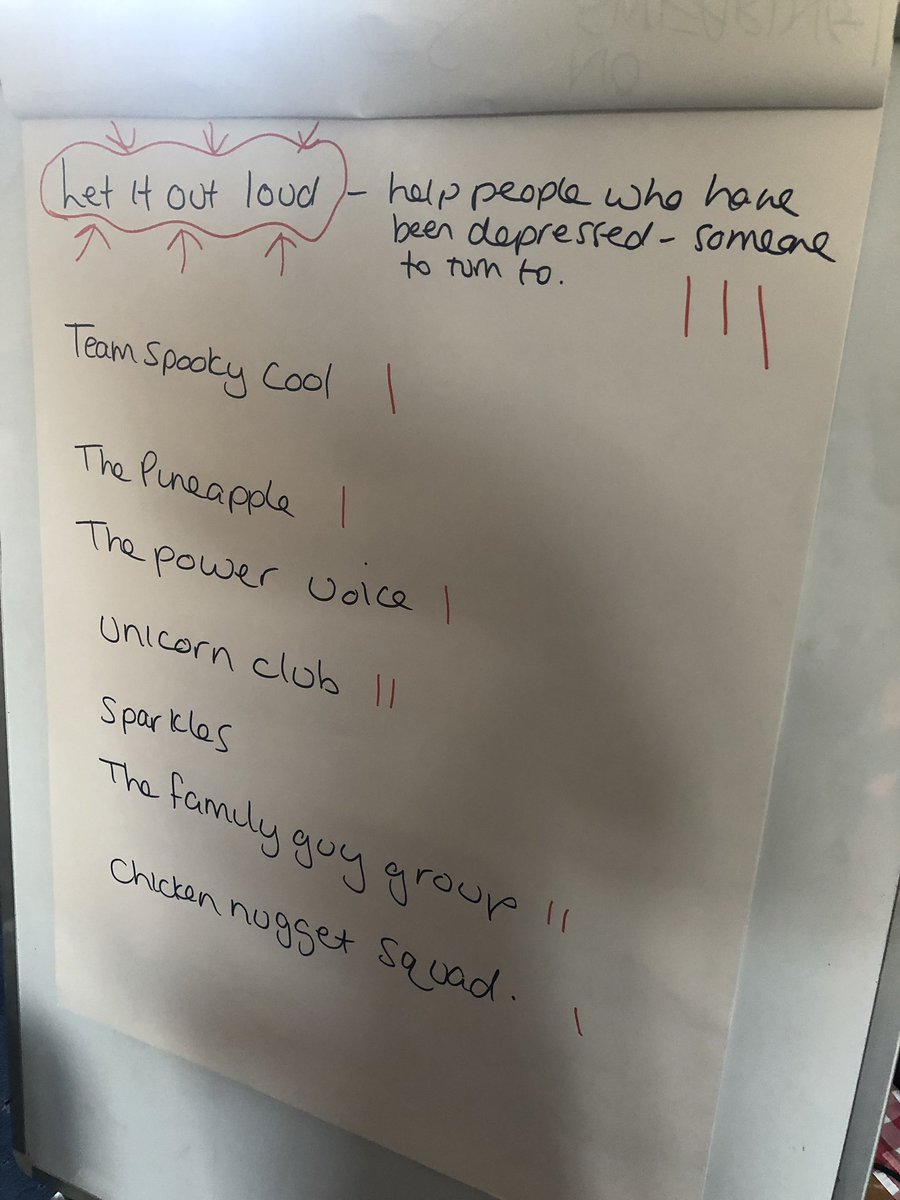 Let it out loud - help people who have
been depressed - someone
to turn to.
Team Spooky Cool
The Pineapple
The power voice
Unicorn club
Sparkles
The family guy group
Chicken nugget squad.